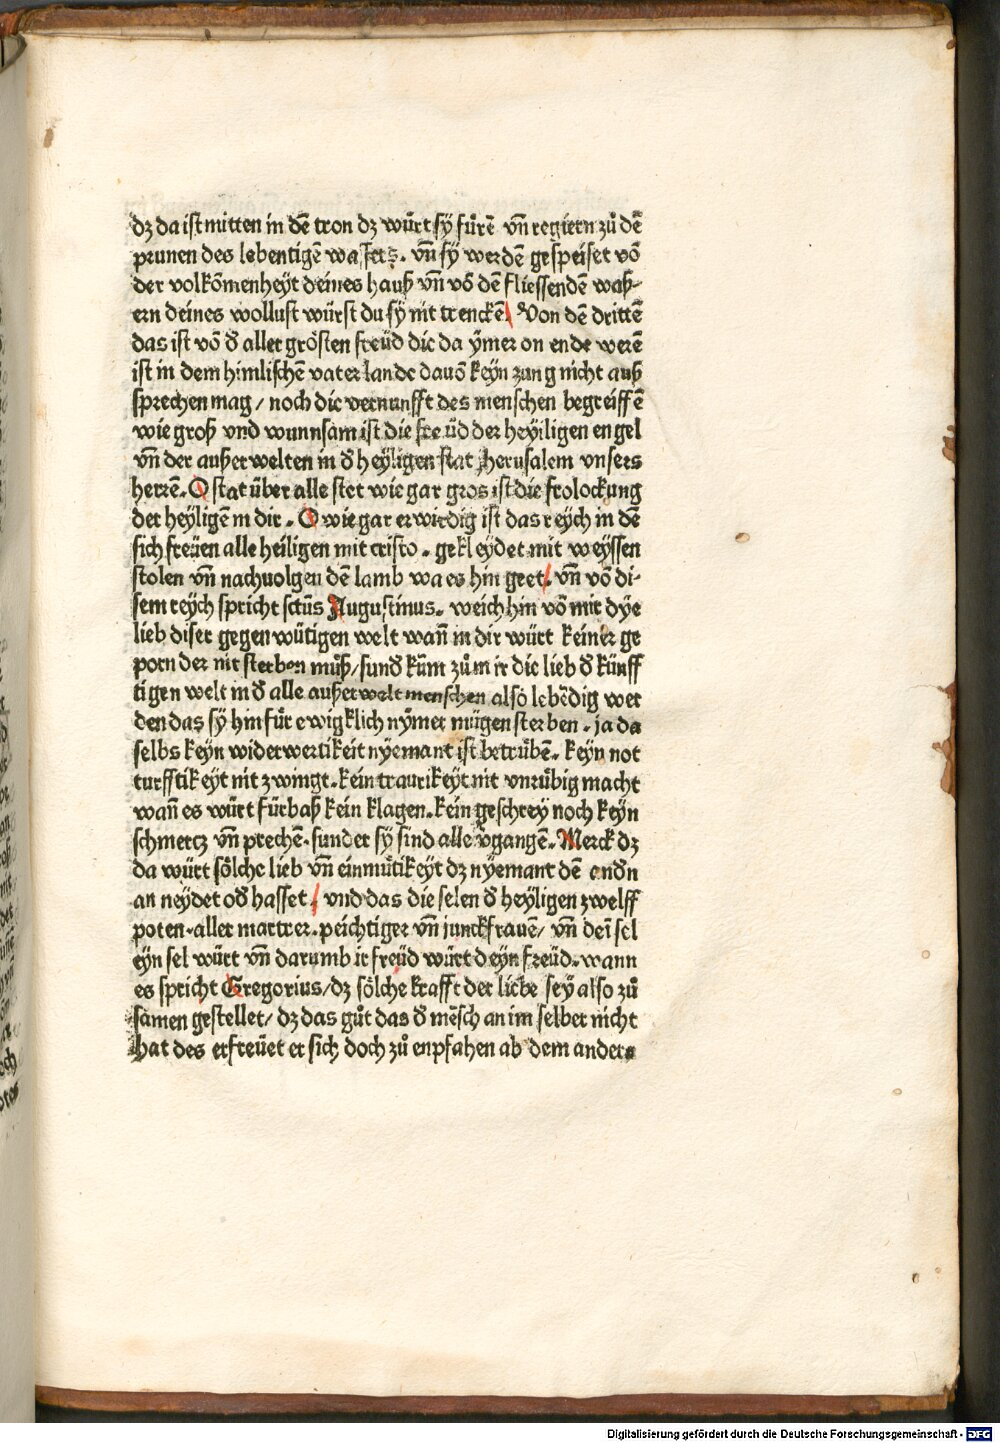 dz da ist mitten in dē tron dz würt sy fürē vn̄ regiern zů dē
prunen des lebentigē wassers. vn̄ sy werdē gespeiset vō
der volkōmenheyt deines hauß vn̄ vō dē fliessendē waß-
ern deines wollust würst du sy nit trenckē. Von dē drittē
das ist vō d̄ aller grösten freüd die da ÿmer on ende werē
ist in dem himlischē vater lande davō keyn zung nicht auß
sprechen mag / noch die vernunfft des menschen begreiffē
wie groß vnd wunnsam ist die freüd der heyiligen engel
vn̄ der außerwelten in d̄ heyligen stat Jherusalem vnsers
herrē. O stat über alle stet wie gar gros ist die frolockung
der heyligē in dir. O wie gar erwirdig ist das reych in dē
sich freüen alle heiligen mit cristo. gekleydet mit weyssen
stolen vn̄ nachuolgen dē lamb wa es hin geet. vn̄ vō di-
sem reych spricht sctūs Augustinus. weich hin vō mir dÿe
lieb diser gegenwütigen welt wan̄ in dir würt keiner ge
porn der nit sterben můß / sund̄ kūm zů mir die lieb d̄ künff
tigen welt in d̄ alle außerwelt menschen also lebēdig wer
den das sÿ hin für ewigklich nÿmer mügen sterben. ja da
selbs keyn widerwertikeit nyemant ist betrübē. keyn not
turfftikeyt nit zwingt. kein traurikeyt nit vnrübig macht
wan̄ es würt fürbaß kein klagen. kein geschrey noch keyn
schmercz vn̄ prechē. sunder sy sind alle v̄gangē. Merck dz
da würt sölche lieb vn̄ einmütikeyt dz nyemant dē andn
an neydet od̄ hasset. vnd das die selen d̄ heyligen zwelff
poten. aller martrer. peichtiger vn̄ junckfrauē / vn̄ deī sel
eyn sel würt vn̄ darumb ir freüd würt deyn freüd. wann
es spricht Gregorius / dz sölche krafft der liebe seÿ also zů
samen gestellet / dz das gůt das d̄ mēsch an im selber nicht
hat des erfreüet er sich doch zů enpfahen ab dem andern
Digitalisierung gefördert durch die Deutsche Forschungsgemeinschaft - DFG